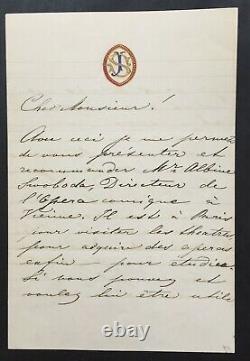 JS
Cher Monsieur!
Avec ceci je me permets
de vous présenter et
recommander Mr Albin
Swoboda, Directeur de
l'Opera comique à
Vienne. Il est à Paris
pour visiter les theatres,
pour acquérir des operas
enfin pour étudier.
Si vous pouvez et
voulez lui être utile